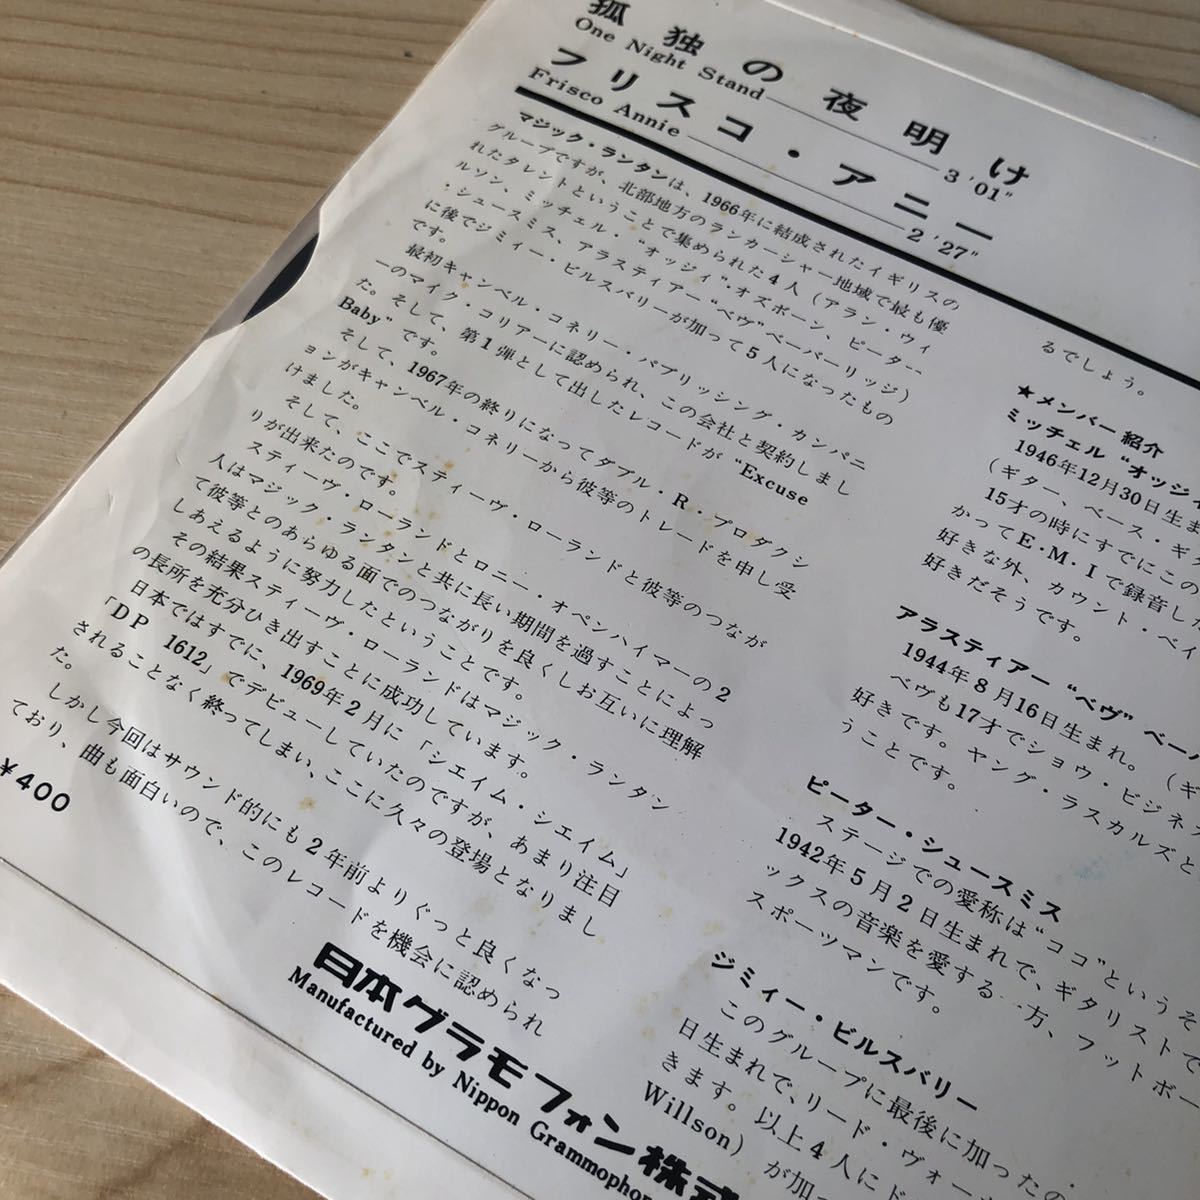 孤独の夜明け
One Night Stand 3'01"
フリスコ・アニー
Frisco Annie 2'27"
マジック・ランタンは、1966年に結成されたイギリスの
グループですが、北部地方のランカーシャー地域で最も優
れたタレントということで集められた4人(アラン・ウィ
ルソン、ミッチェル・"オッジィ"・オズボーン、ピーター
・シュースミス、アラスティアー"ベヴ"ベーバーリッジ)
に後でジミィー・ビルスバリーが加って5人になったもの
です。
最初キャンベル・コネリー・パブリッシング・カンパニ
ーのマイク・コリアーに認められ、この会社と契約しまし
た。そして、第1弾として出したレコードが"Excuse
Baby"です。
そして、1967年の終りになってダブル・R・プロダクシ
ョンがキャンベル・コネリーから彼等のトレードを申し受
けました。
そして、ここでスティーヴ・ローランドと彼等のつなが
りが出来たのです。
スティーヴ・ローランドとロニー・オペンハイマーの2
人はマジック・ランタンと共に長い期間を過すことによっ
て彼等とのあらゆる面でのつながりを良くしお互いに理解
しあえるように努力したということです。
その結果スティーヴ・ローランドはマジック・ランタン
の長所を充分ひき出すことに成功しています。
日本ではすでに、1969年2月に「シェイム・シェイム」
「DP 1612」でデビューしていたのですが、あまり注目
されることなく終ってしまい、ここに久々の登場となりまし
た。
しかし今回はサウンド的にも2年前よりぐっと良くなっ
ており、曲も面白いので、このレコードを機会に認められ
るでしょう。
★メンバー紹介
ミッチェル"オッジィ
1946年12月30日生ま
(ギター、ベース・ギタ
15才の時にすでにこの
かってE・M・Iで録音した
好きな外、カウント・ベイ
好きだそうです。
アラスティアー"ベヴ"ベーバ
1944年8月16日生まれ。(ギ
ベヴも17才でショウ・ビジネス
好きです。ヤング・ラスカルズと
うことです。
ピーター・シュースミス
ステージでの愛称は"ココ"というそ
1942年5月2日生まれで、ギタリストで
ックスの音楽を愛する一方、フットボー
スポーツマンです。
ジミィー・ビルスバリー
このグループに最後に加ったの
日生まれで、リード・ヴォー
きます。以上4人にド
Willson)が加
¥400
日本グラモフォン株式
Manufactured by Nippon Grammophon